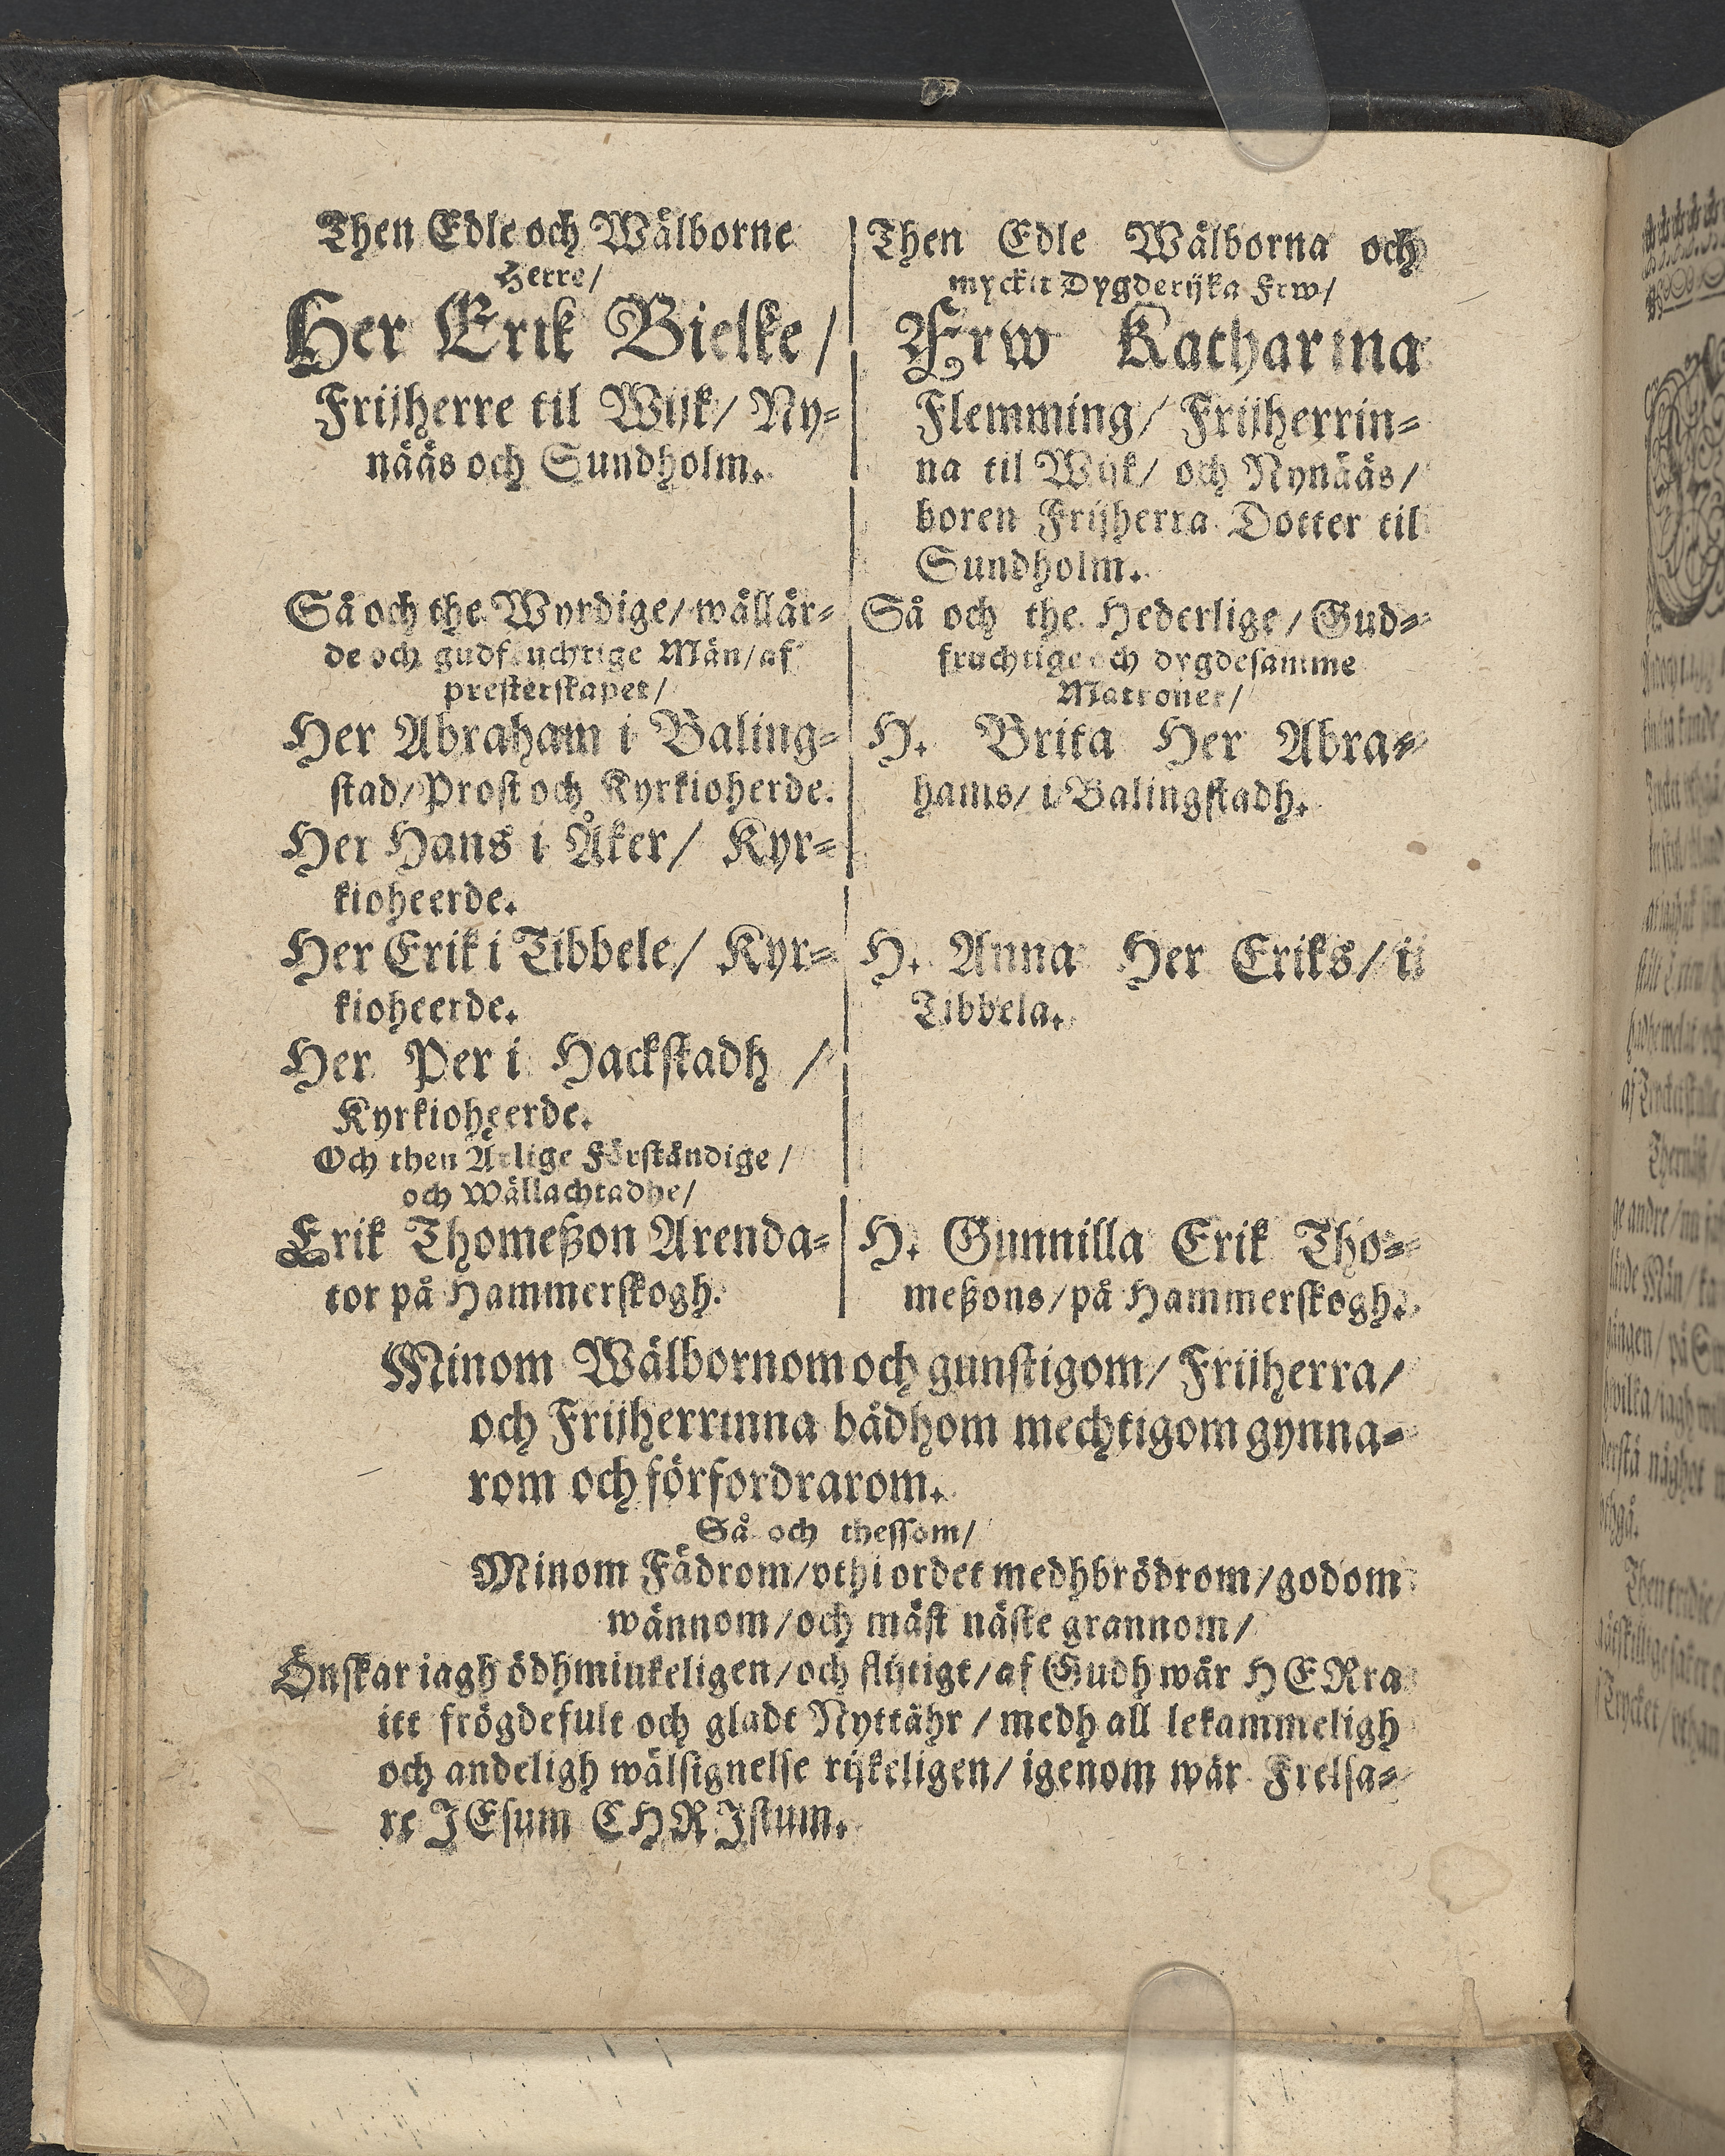 Then Edle och Wälborne
Herre/
Her Erik Bielke/
Frijherre til Wijk/ Ny-
nääs och Sundholm.
Så och the Wyrdige/ wällär-
de och gudfruchtige Män/ af
presterskapet/
Her Abraham i Baling-
stad/ Prost och Kyrkioherde.
Her Hans i Åker/ Kyr-
kioheerde.
Her Erik i Tibbele/ Kyr-
kioheerde.
Her Per i Hackstadh/
Kyrkioheerde.
Och then Ärlige Förståndige/
och Wällachtadhe/
Erik Thomeßon Arenda-
tor på Hammerskogh.
Then Edle Wälborna och
myckit Dygderijka Frw/
Frw Katharina
Flemming/ Frijherrin-
na til Wijk/ och Nynääs/
boren Frijherra Dotter til
Sundholm.
Så och the Hederlige/ Gud-
fruchtige och dygdesamme
Matroner/
H. Brita Her Abra-
hams/ i Balingstadh.
H. Anna Her Eriks/ i
Tibbela.
H. Gunnilla Erik Tho-
meßons/ på Hammerskogh.
Minom Wälbornom och gunstigom/ Frijherra/
och Frijherrinna bådhom mechtigom gynna-
rom och förfordrarom.
Så och thessom/
Minom Fädrom/ vthi ordet medhbrödrom/ godom
wännom/ och mäst näste grannom/
Önskar iagh ödhmiukeligen/ och flijtigt/ af Gudh wår HERra
itt frögdefult och gladt Nyttåhr/ medh all lekammeligh
och andeligh wälsignelse rijkeligen/ igenom wår Frelsa-
re JEsum CHRJstum.